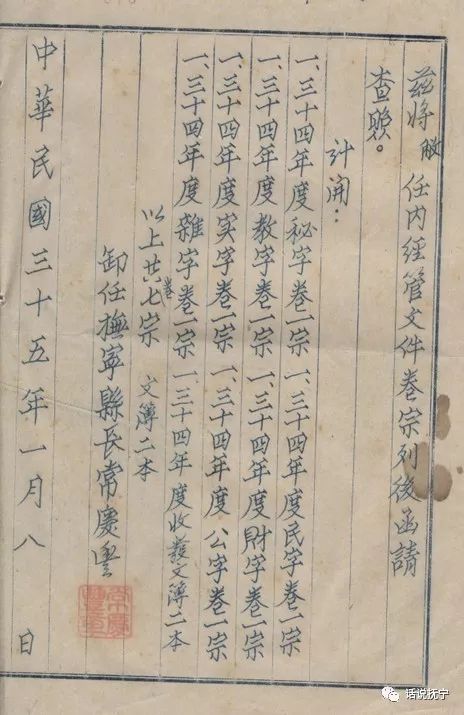 茲將敝任内經管文件卷宗列後函請
查照。
計開：
一、三十四年度秘字卷一宗 一、三十四年度民字卷一宗
一、三十四年度教字卷一宗 一、三十四年度財字卷一宗
一、三十四年度实字卷一宗 一、三十四年度公字卷一宗
一、三十四年度雜字卷一宗 一、三十四年度收發文簿二本
以上共卷七宗 文簿二本
卸任撫寧縣長常慶豐
中華民國三十五年一月八日
常慶豐章
话说抚宁